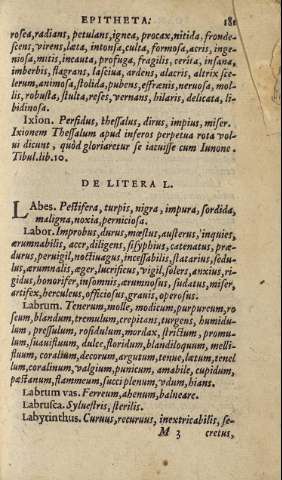 EPITHETA. 181
rosea, radians, petulans, ignea, procax, nitida, fronde-
scens, virens, læta, intonsa, culta, formosa, acris, inge-
niosa, mitis, incauta, profuga, fragilis, cerita, insana,
imberbis, flagrans, lasciua, ardens, alacris, altrix sce-
lerum, animosa, stolida, pubens, effrænis, neruosa, mol-
lis, robusta, stulta, reses, vernans, hilaris, delicata, li-
bidinosa.
Ixion. Perfidus, thessalus, dirus, impius, miser.
Ixionem Thessalum apud inferos perpetua rota vol-
ui dicunt, quòd gloriaretur se iacuisse cum Iunone.
Tibul. lib. 10.
DE LITERA L.
LAbes. Pestifera, turpis, nigra, impura, sordida,
maligna, noxia, perniciosa.
Labor. Improbus, durus, mœstus, austerus, inquies,
ærumnabilis, acer, diligens, sisyphius, catenatus, præ-
durus, peruigil, noctiuagus, incessabilis, statarius, sedu-
lus, ærumnalis, æger, lucrificus, vigil, solers, anxius, ri-
gidus, honorifer, insomnis, ærumnosus, sudatus, miser,
artifex, herculeus, officiosus, grauis, operosus.
Labrum. Tenerum, molle, modicum, purpureum, ro
seum, blandum, tremulum, crepitans, turgens, humidu-
lum, pressulum, rosidulum, mordax, strictum, promu-
lum, suauissimum, dulce, floridum, blandiloquum, melli-
fluum, coralium, decorum, argutum, tenue, lætum, tenel
lum, coralinum, valgium, punicum, amabile, cupidum,
pæstanum, flammeum, succiplenum, vdum, hians.
Labrum vas. Ferreum, ahenum, balneare.
Labrusca. Syluestris, sterilis.
Labyrinthus. Curuus, recuruus, inextricabilis, se-
M 3 cretus,